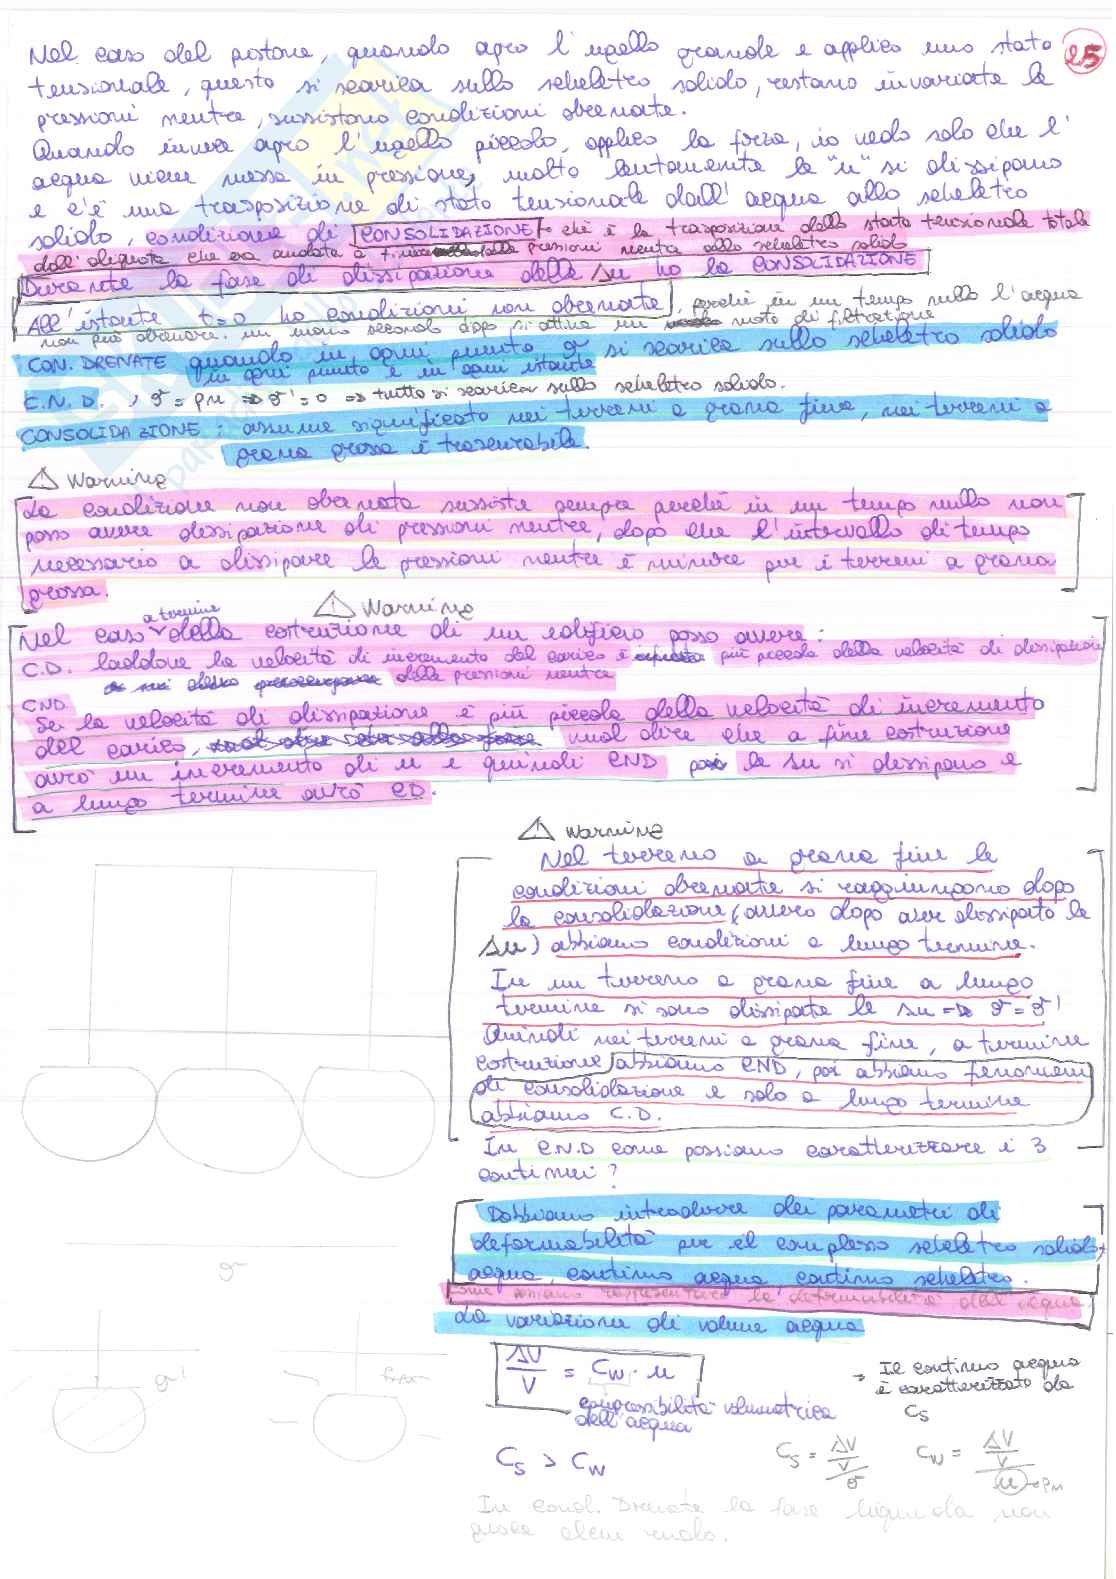 25
Nel caso del pistone, quando apro l'ugello grande e applico uno stato
tensionale, questo si scarica sullo scheletro solido, restano invariate le
pressioni neutre, sussistono condizioni drenate.
Quando invece apro l'ugello piccolo, applico la forza, io vedo solo che l'
acqua viene messa in pressione, molto lentamente le "u" si dissipano
e c'è una trasposizione di stato tensionale dall'acqua allo scheletro
solido, condizione di CONSOLIDAZIONE che è la trasposizione dello stato tensionale totale
dall'aliquota che era andata a pressioni neutre allo scheletro solido
Durante la fase di dissipazione delle Δu ho la CONSOLIDAZIONE
All'istante t=0 ho condizioni non drenate, perché in un tempo nullo l'acqua
non può drenare. un nano secondo dopo si attiva un moto di filtrazione
CON. DRENATE quando in ogni punto σ si scarica sullo scheletro solido
in ogni punto e in ogni istante
C.N.D. , σ = pn => σ' = 0 => tutto si scarica sullo scheletro solido.
CONSOLIDAZIONE: assume significato nei terreni a grana fine, nei terreni a
grana grossa è trascurabile.
⚠ Warning
La condizione non drenata sussiste sempre perché in un tempo nullo non
posso avere dissipazione di pressioni neutre, dopo che l'intervallo di tempo
necessario a dissipare le pressioni neutre è minore per i terreni a grana
grossa.
⚠ Warning
Nel caso a termine della costruzione di un edificio posso avere:
C.D. laddove la velocità di incremento del carico è più piccola della velocità di dissipazione
delle pressioni neutre
CND.
Se la velocità di dissipazione è più piccola della velocità di incremento
del carico, vuol dire che a fine costruzione
avrò un incremento di u e quindi CND poi le Δu si dissipano e
a lungo termine avrò CD.
⚠ Warning
Nel terreno a grana fine le
condizioni drenate si raggiungono dopo
la consolidazione (ovvero dopo aver dissipato le
Δu) abbiamo condizioni a lungo termine.
In un terreno a grana fine a lungo
termine si sono dissipate le Δu => σ = σ'
Quindi nei terreni a grana fine, a termine
costruzione abbiamo CND, poi abbiamo fenomeni
di consolidazione e solo a lungo termine
abbiamo C.D.
In C.N.D come possiamo caratterizzare i 3
continui?
Dobbiamo introdurre dei parametri di
deformabilità per il complesso scheletro solido,
acqua, continuo acqua, continuo scheletro.
rappresentare la deformabilità dell'acqua
La variazione di volume acqua
ΔV/V = Cw · u
compressibilità volumetrica
dell'acqua
→ Il continuo acqua
è caratterizzato da
Cs
Cs > Cw
Cs = ΔV/V / σ
Cw = ΔV/V / u → pn
In cond. Drenate la fase liquida non
gioca alcun ruolo.
σ
σ'